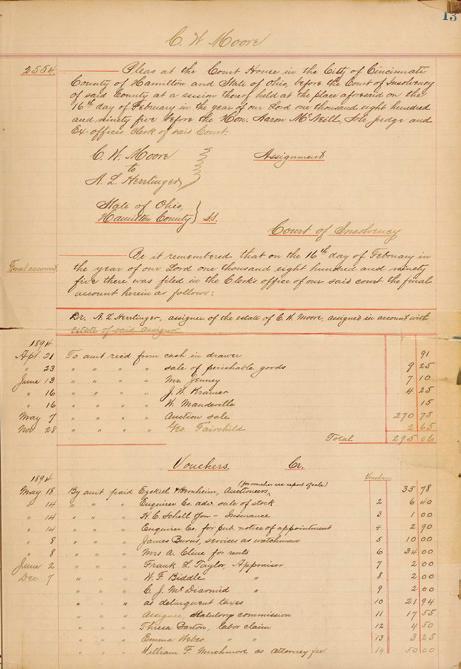 13
C. W. Moore
2554
Pleas at the Court House in the City of Cincinnati
County of Hamilton and State of Ohio, before the Court of Insolvency
of said County at a session thereof held at the place aforesaid on the
16th day of February in the year of our Lord one thousand eight hundred
and ninety five before the Hon. Aaron McNeill, Sole Judge and
Ex-officio Clerk of said Court.
C. W. Moore
to
A. L. Herrlinger
Assignment
State of Ohio,
Hamilton County } SS.
Court of Insolvency
Final account
Be it remembered that on the 16th day of February in
the year of our Lord one thousand eight hundred and ninety
five there was filed in the Clerks office of our said court the final
account herein as follows:
Dr. A. L. Herrlinger, assignee of the estate of C. W. Moore, assigned in account with
estate of said assignor
1894
Apl 21 To amt recd from cash in drawer 91
" 23 " " " " sale of perishable goods 9 25
June 13 " " " " Mr. Jenney 7 10
" 16 " " " " J. W. Kramer 4 25
" 16 " " " " W. Mandeville 15
May 7 " " " " Auction sale 270 75
Nov 28 " " " " Geo. Fairchild 2 65
Total 295 06
Vouchers. Cr.
1894
Voucher
May 18 By amt paid Ezekiel & Bernheim, Auctioneers, 35 78
" 14 " " " Enquirer Co. adv. sale of stock 2 6 40
" 14 " " " Insurance 3 1 00
" 14 " " " Enquirer Co. for pub. notice of appointment 4 2 90
" 8 " " " James Burns, services as watchman 5 10 00
" 8 " " " Mrs A. Cline for rents 6 34 00
June 2 " " " Frank L. Taylor, Appraiser 7 2 00
Dec 7 " " " W. F. Biddle " 8 2 00
" " " C. J. McDiarmid " 9 2 00
" " " as delinquent taxes 10 21 94
" " " Assignee statutory commission 11 17 55
" " " Theresa Barton, labor claim 12 4 50
" " " Emma Weber " " 13 3 25
" " " William F. as attorney fee 14 50 00